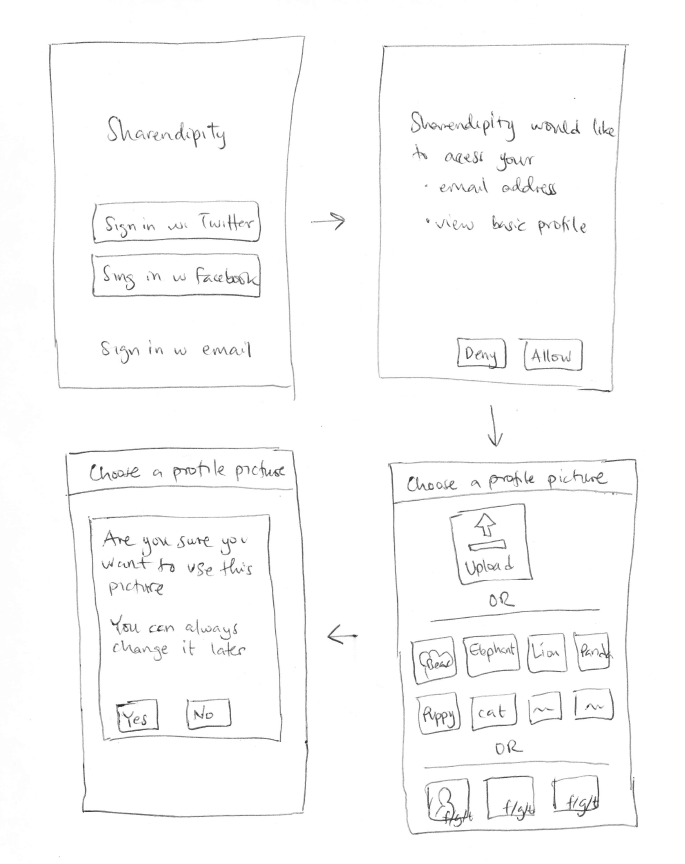 Sharendipity
Sign in w. Twitter
Sing in w Facebook
Sign in w email
Sharendipity would like
to acess your
· email address
· view basic profile
Deny
Allow
Choose a profile picture
Upload
OR
Bear
Elephant
Lion
Panda
Puppy
cat
OR
f/g/t
f/g/t
f/g/t
Choose a profile picture
Are you sure you
want to use this
picture
You can always
change it later
Yes
No